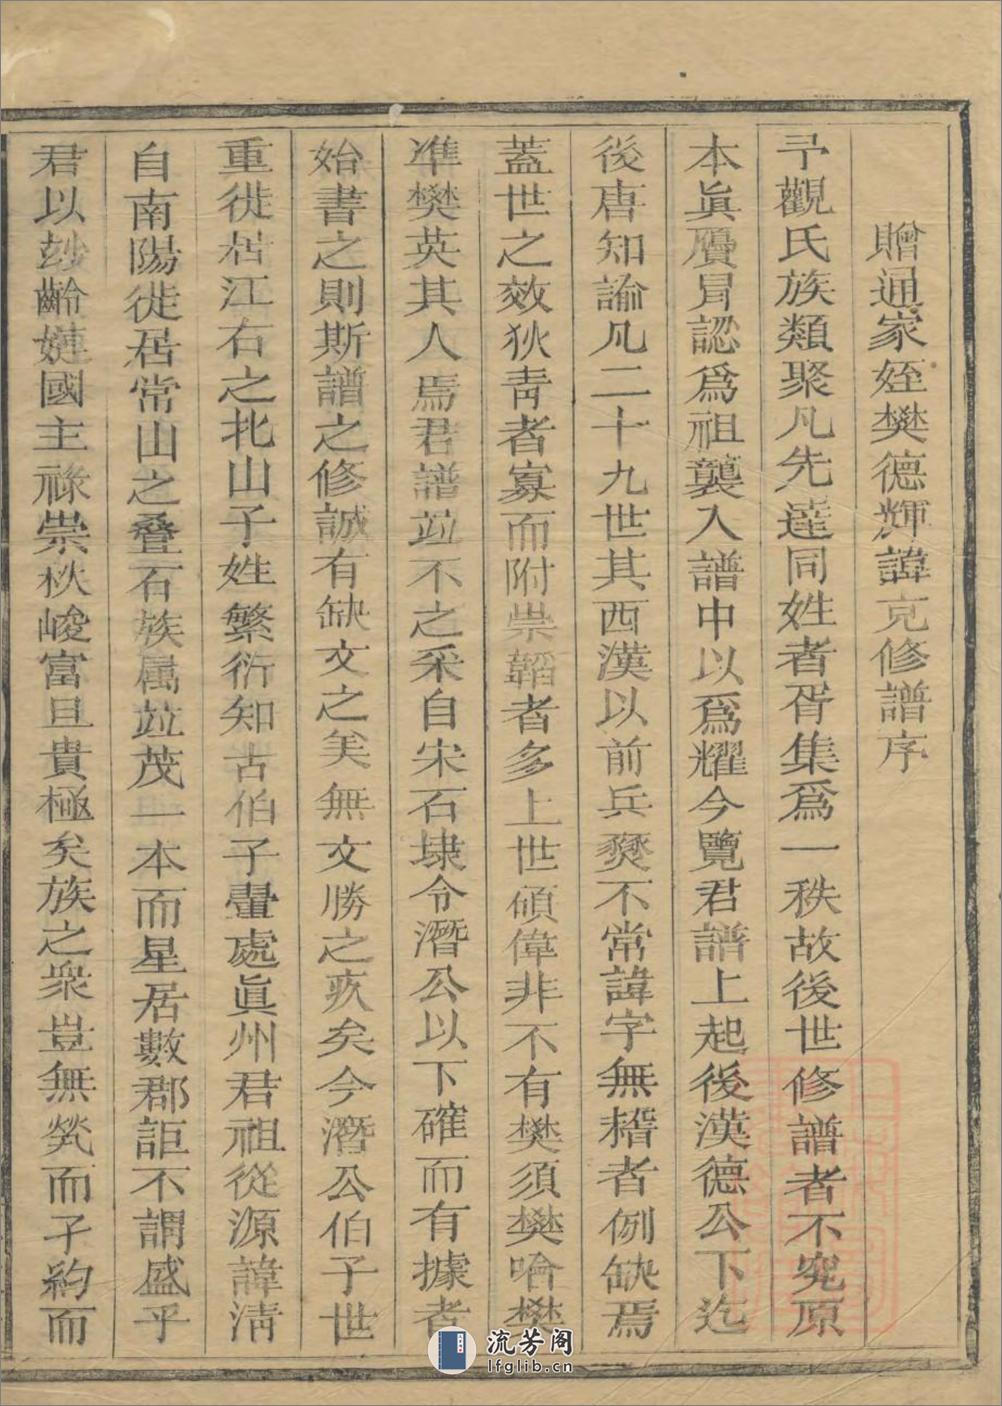 贈通家姪樊德輝諱克修譜序
予觀氏族類聚凡先達同姓者胥集爲一秩故後世修譜者不究原
本眞贋冐認爲祖襲入譜中以爲耀今覽君譜上起後漢德公下迄
後唐知諭凡二十九世其西漢以前兵燹不常諱字無稽者例缺焉
蓋世之效狄靑者寡而附崇韜者多上世碩偉非不有樊須樊噲樊
准樊英其人焉君譜竝不之采自宋石埭令潛公以下確而有據者
始書之則斯譜之修誠有缺文之美無文勝之疚矣今潛公伯子世
重徙居江右之北山子姓繁衍知古伯子畺處眞州君祖從源諱淸
自南陽徙居常山之叠石族属竝茂一本而星居數郡詎不謂盛乎
君以玅齡婕國主祿崇秩峻富且貴極矣族之衆豈無煢而孑約而
流芳阁
lfglib.cn